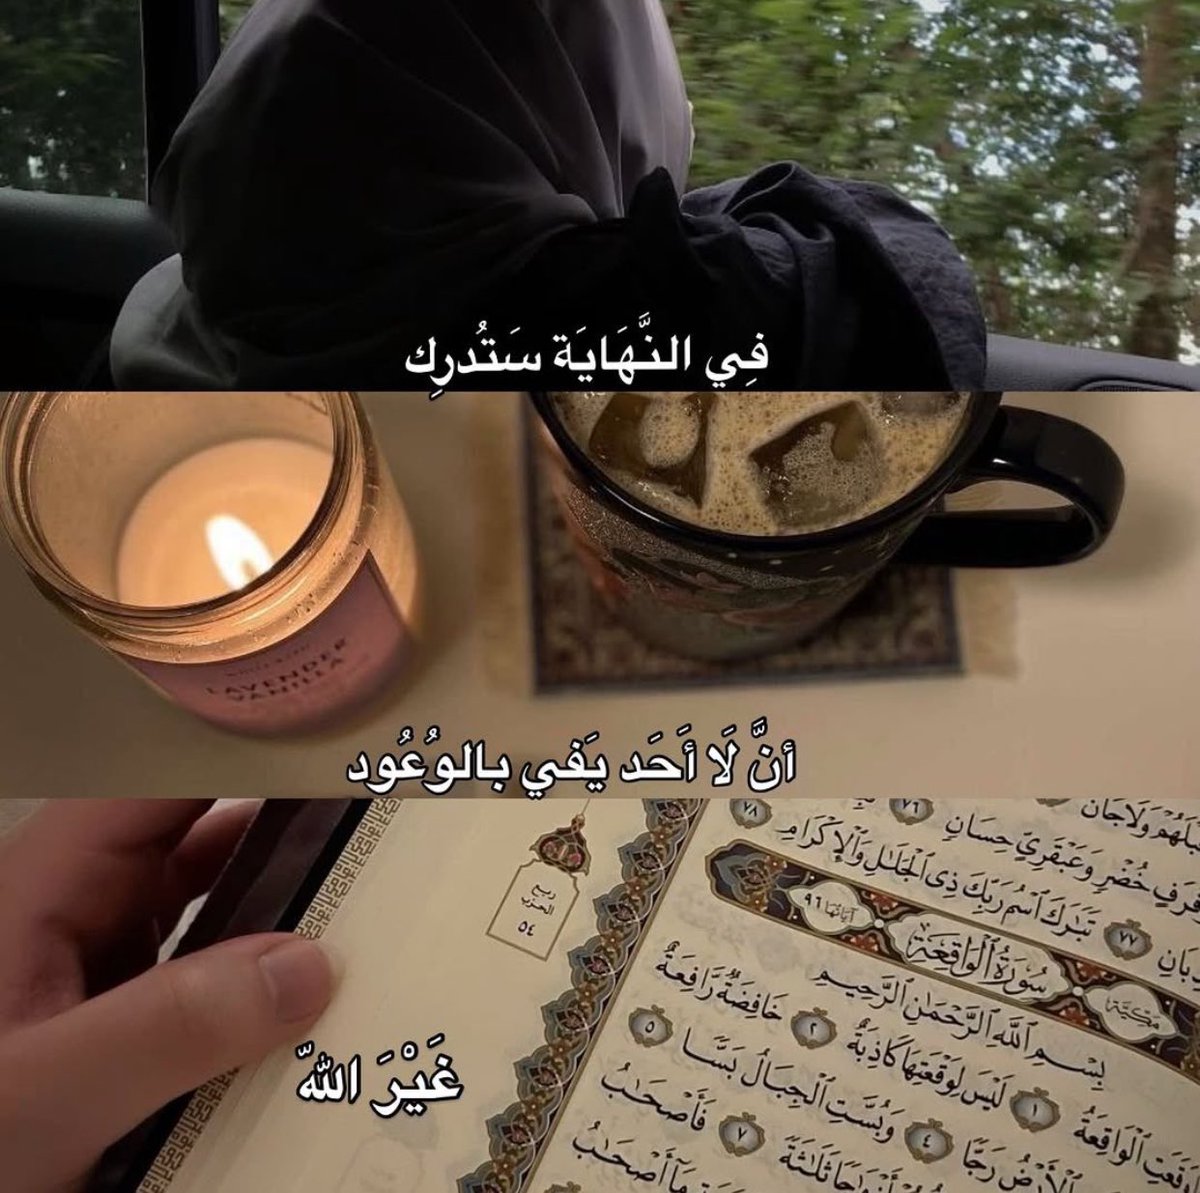 فِي النَّهَايَة سَتُدرِك
LAVENDER
VANILLA
أنَّ لَا أَحَد يَفي بالوُعُود
٧٨
٧٦
وَعَبْقَرِيٍّ حِسَانٍ
خُضْرٍ
٧٧ تَبَٰرَكَ ٱسْمُ رَبِّكَ ذِى ٱلْجَلَٰلِ وَٱلْإِكْرَامِ
ربع
الحزب
٥٤
مكية
سُورَةُ الْوَاقِعَةِ
آياتها ٩٦
بِسْمِ ٱللَّهِ ٱلرَّحْمَٰنِ ٱلرَّحِيمِ
ٱلْوَاقِعَةُ ١ لَيْسَ لِوَقْعَتِهَا كَاذِبَةٌ ٢ خَافِضَةٌ رَّافِعَةٌ
ٱلْأَرْضُ رَجًّا ٤ وَبُسَّتِ ٱلْجِبَالُ بَسًّا ٥
ثَلَٰثَةً ٧ فَأَصْحَٰبُ
مَآ أَصْحَٰبُ
غَيْرَ اللهّ